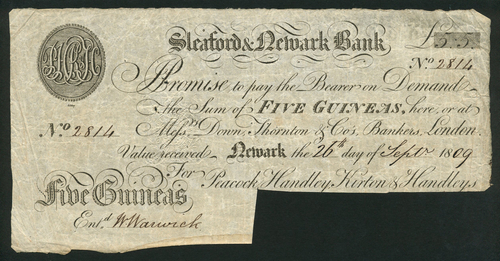 Sleaford & Newark Bank £5.5.
No 2814
I Promise to pay the Bearer on Demand
the Sum of FIVE GUINEAS, here, or at
No 2814 Messrs Down, Thornton & Co's, Bankers, London.
Value received Newark the 26th day of Septr 1809
For
Peacock Handley, Kirton & Handley,s
Five Guineas
Entd W Warwick